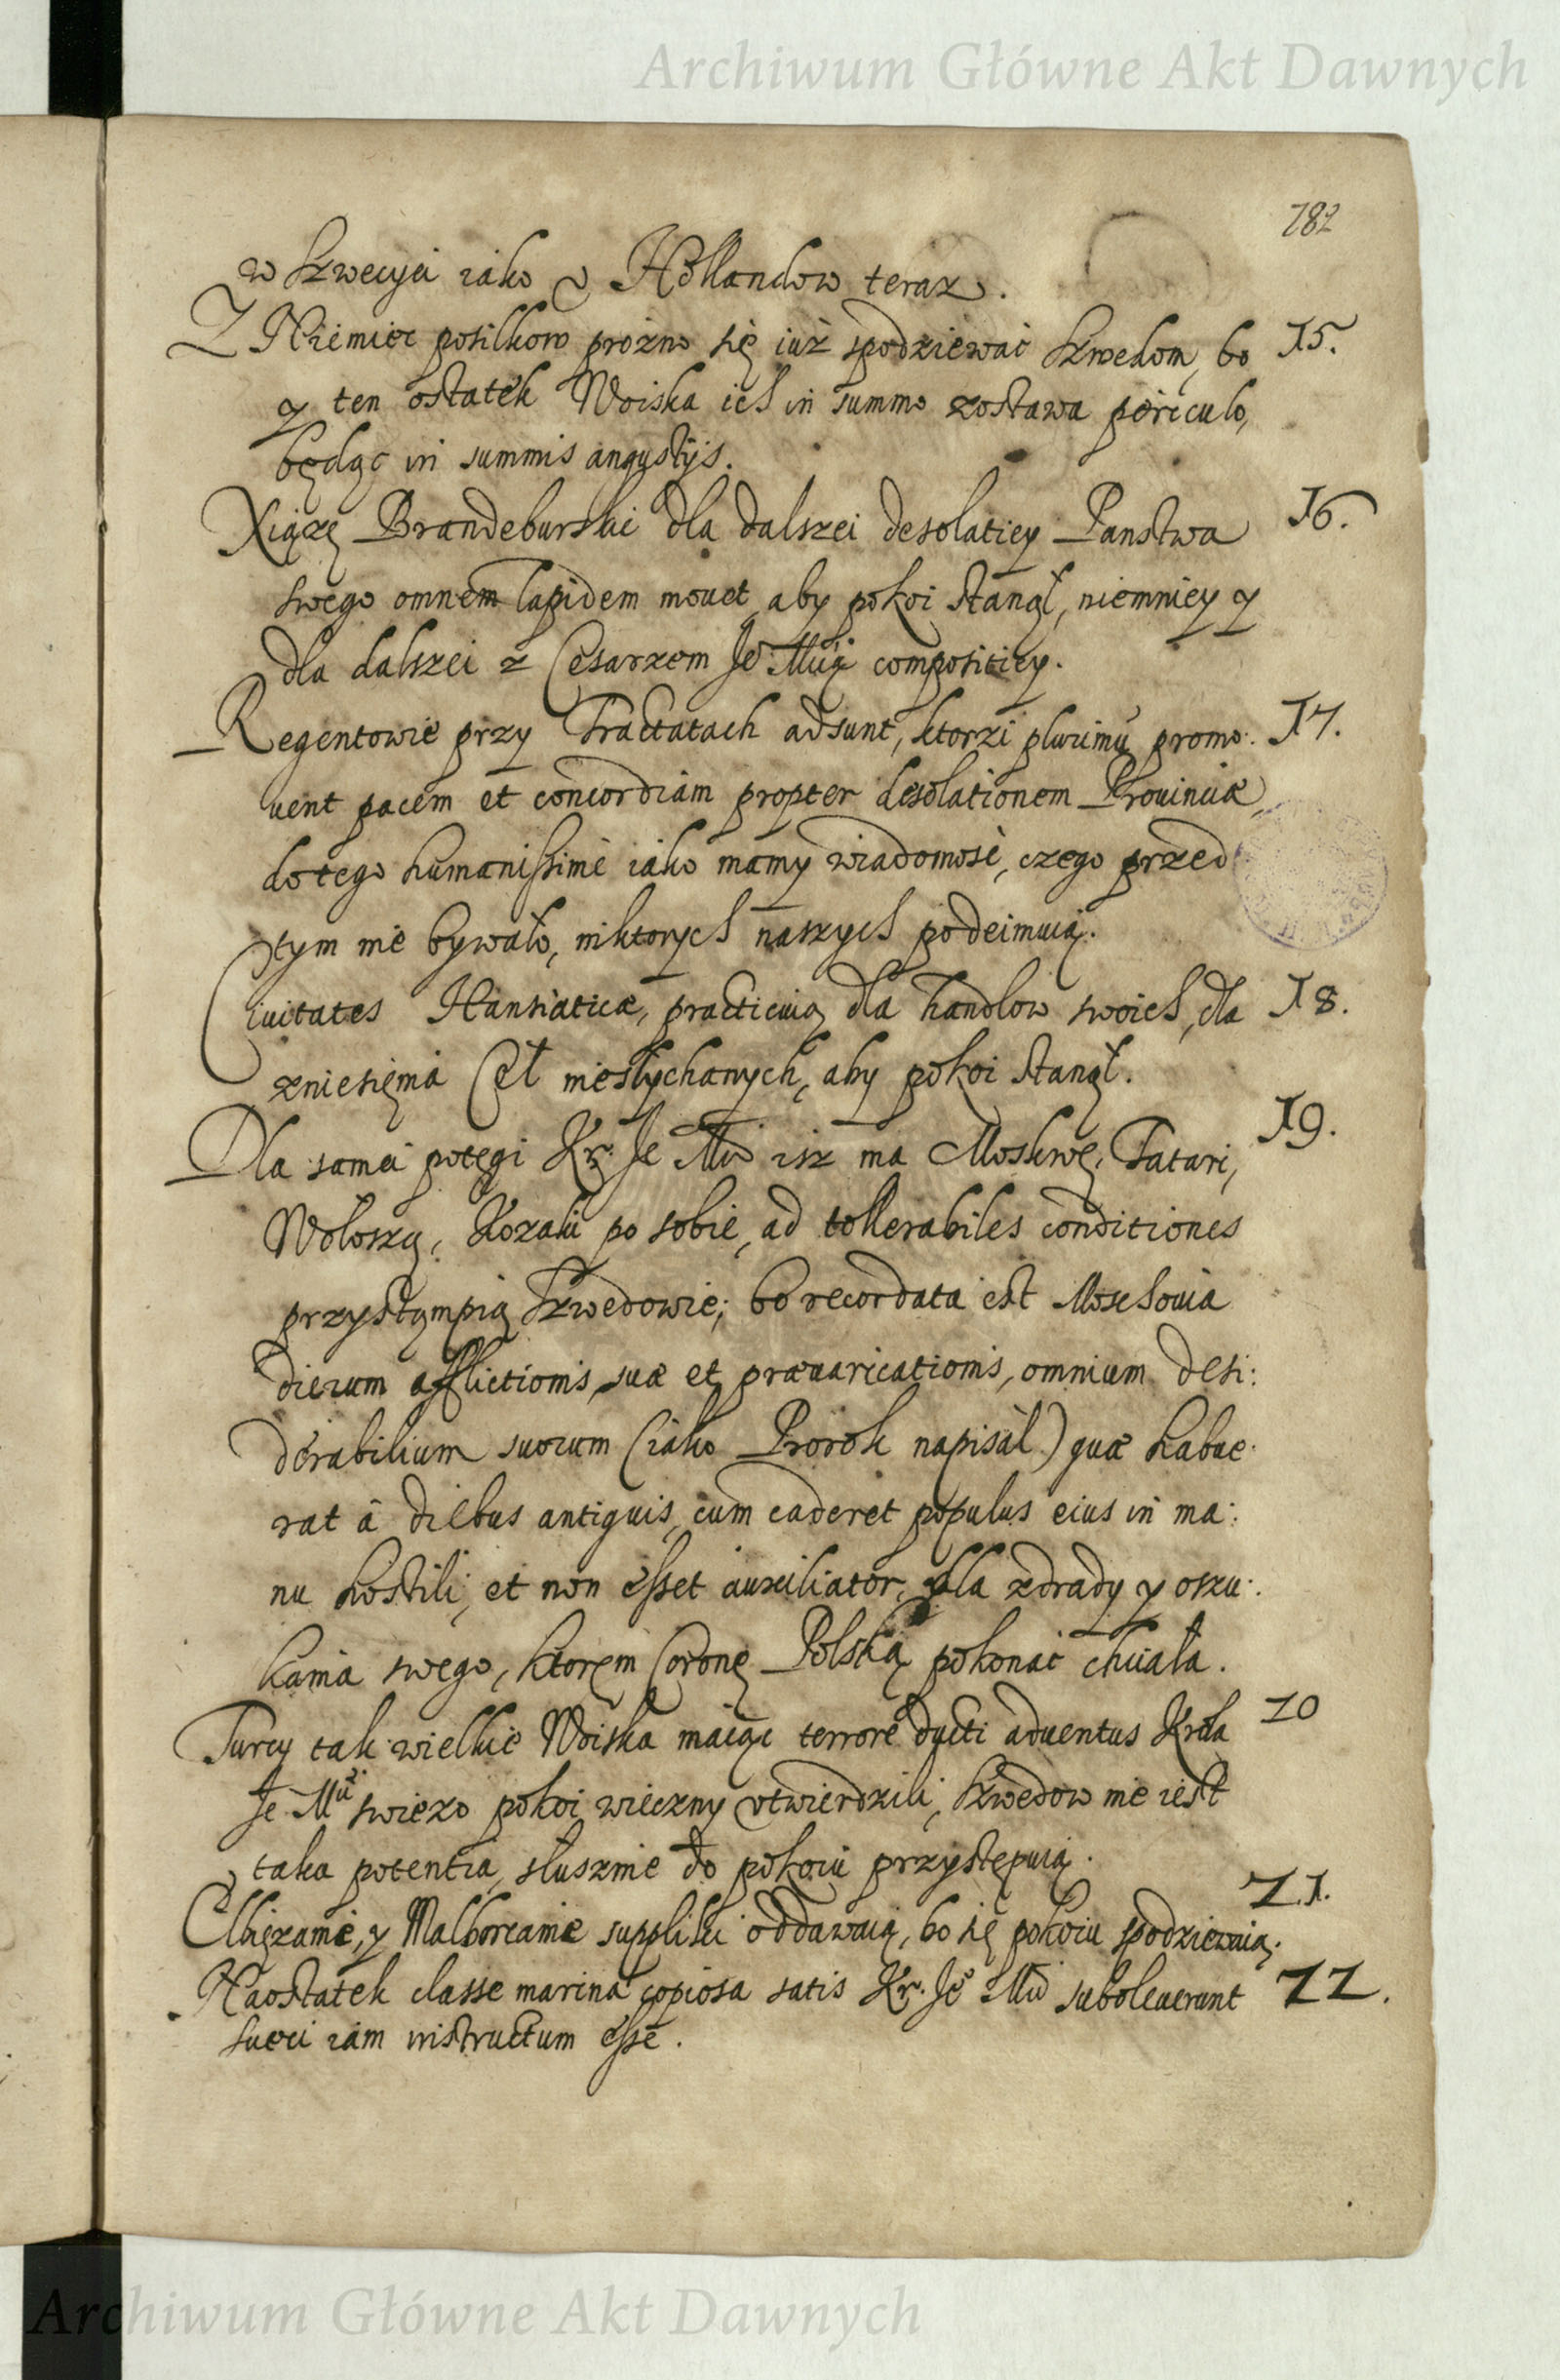 Archiwum Główne Akt Dawnych
782
w Szwecyei iako v Hollandow teraz.
Z Niemiec posilkow prozno się iuż spodziewać Szwedom, bo 15.
y ten ostatek Woiska ich in summo zostawa periculo,
będąc in summis angustijs.
Xiążę Brandeburski dla dalszei desolatiey Panstwa 16.
swego omnem lapidem mouet aby pokoi stanął, niemniey y
dla dalszei z Cesarzem Je Mcią compositiey.
Regentowie przy Tractatach adsunt, ktorzi plurimu promo: 17.
uent pacem et concordiam propter desolationem Prouinciæ,
do tego humanissime iako mamy wiadomość, czego przed
tym nie bywało, niktorych naszych podeimuią.
Ciuitates Hansiaticæ, practicuią dla handlow swoich, dla 18.
zniesięnia Cel niesłychanych, aby pokoi stanął.
Dla samei potęgi Kr. Je Mci isz ma Moskwę, Tatari, 19.
Wołoszą, Kozaki po sobie, ad tollerabiles conditiones
przystąmpią Szwedowie; bo recordata est Moschouia
dierum afflictionis suæ et præuaricationis, omnium desi:
derabilium suorum (iako Prorok napisał) quæ habue:
rat â diebus antiquis, cum caderet populus eius in ma:
nu hostili, et non esset auxiliator, dla zdrady y oszu:
kania swego, ktorem Coronę Polską pokonać chciała.
Turcy tak wielkie Woiska maiąc terrore ducti aduentus Krola 20
Je Mci swiezo pokoi wieczny vtwierdzili, Szwedow nie iest
taka potentia, słusznie do pokoiu przystępuią.
21.
Elbiązanie, y Malborczanie suppliki oddawaią, bo się pokoiu spodziewaią.
Naostatek classe marina copiosa satis Kr. Je Mci suboleuerunt 22.
Sueci iam instructum esse.
Archiwum Główne Akt Dawnych